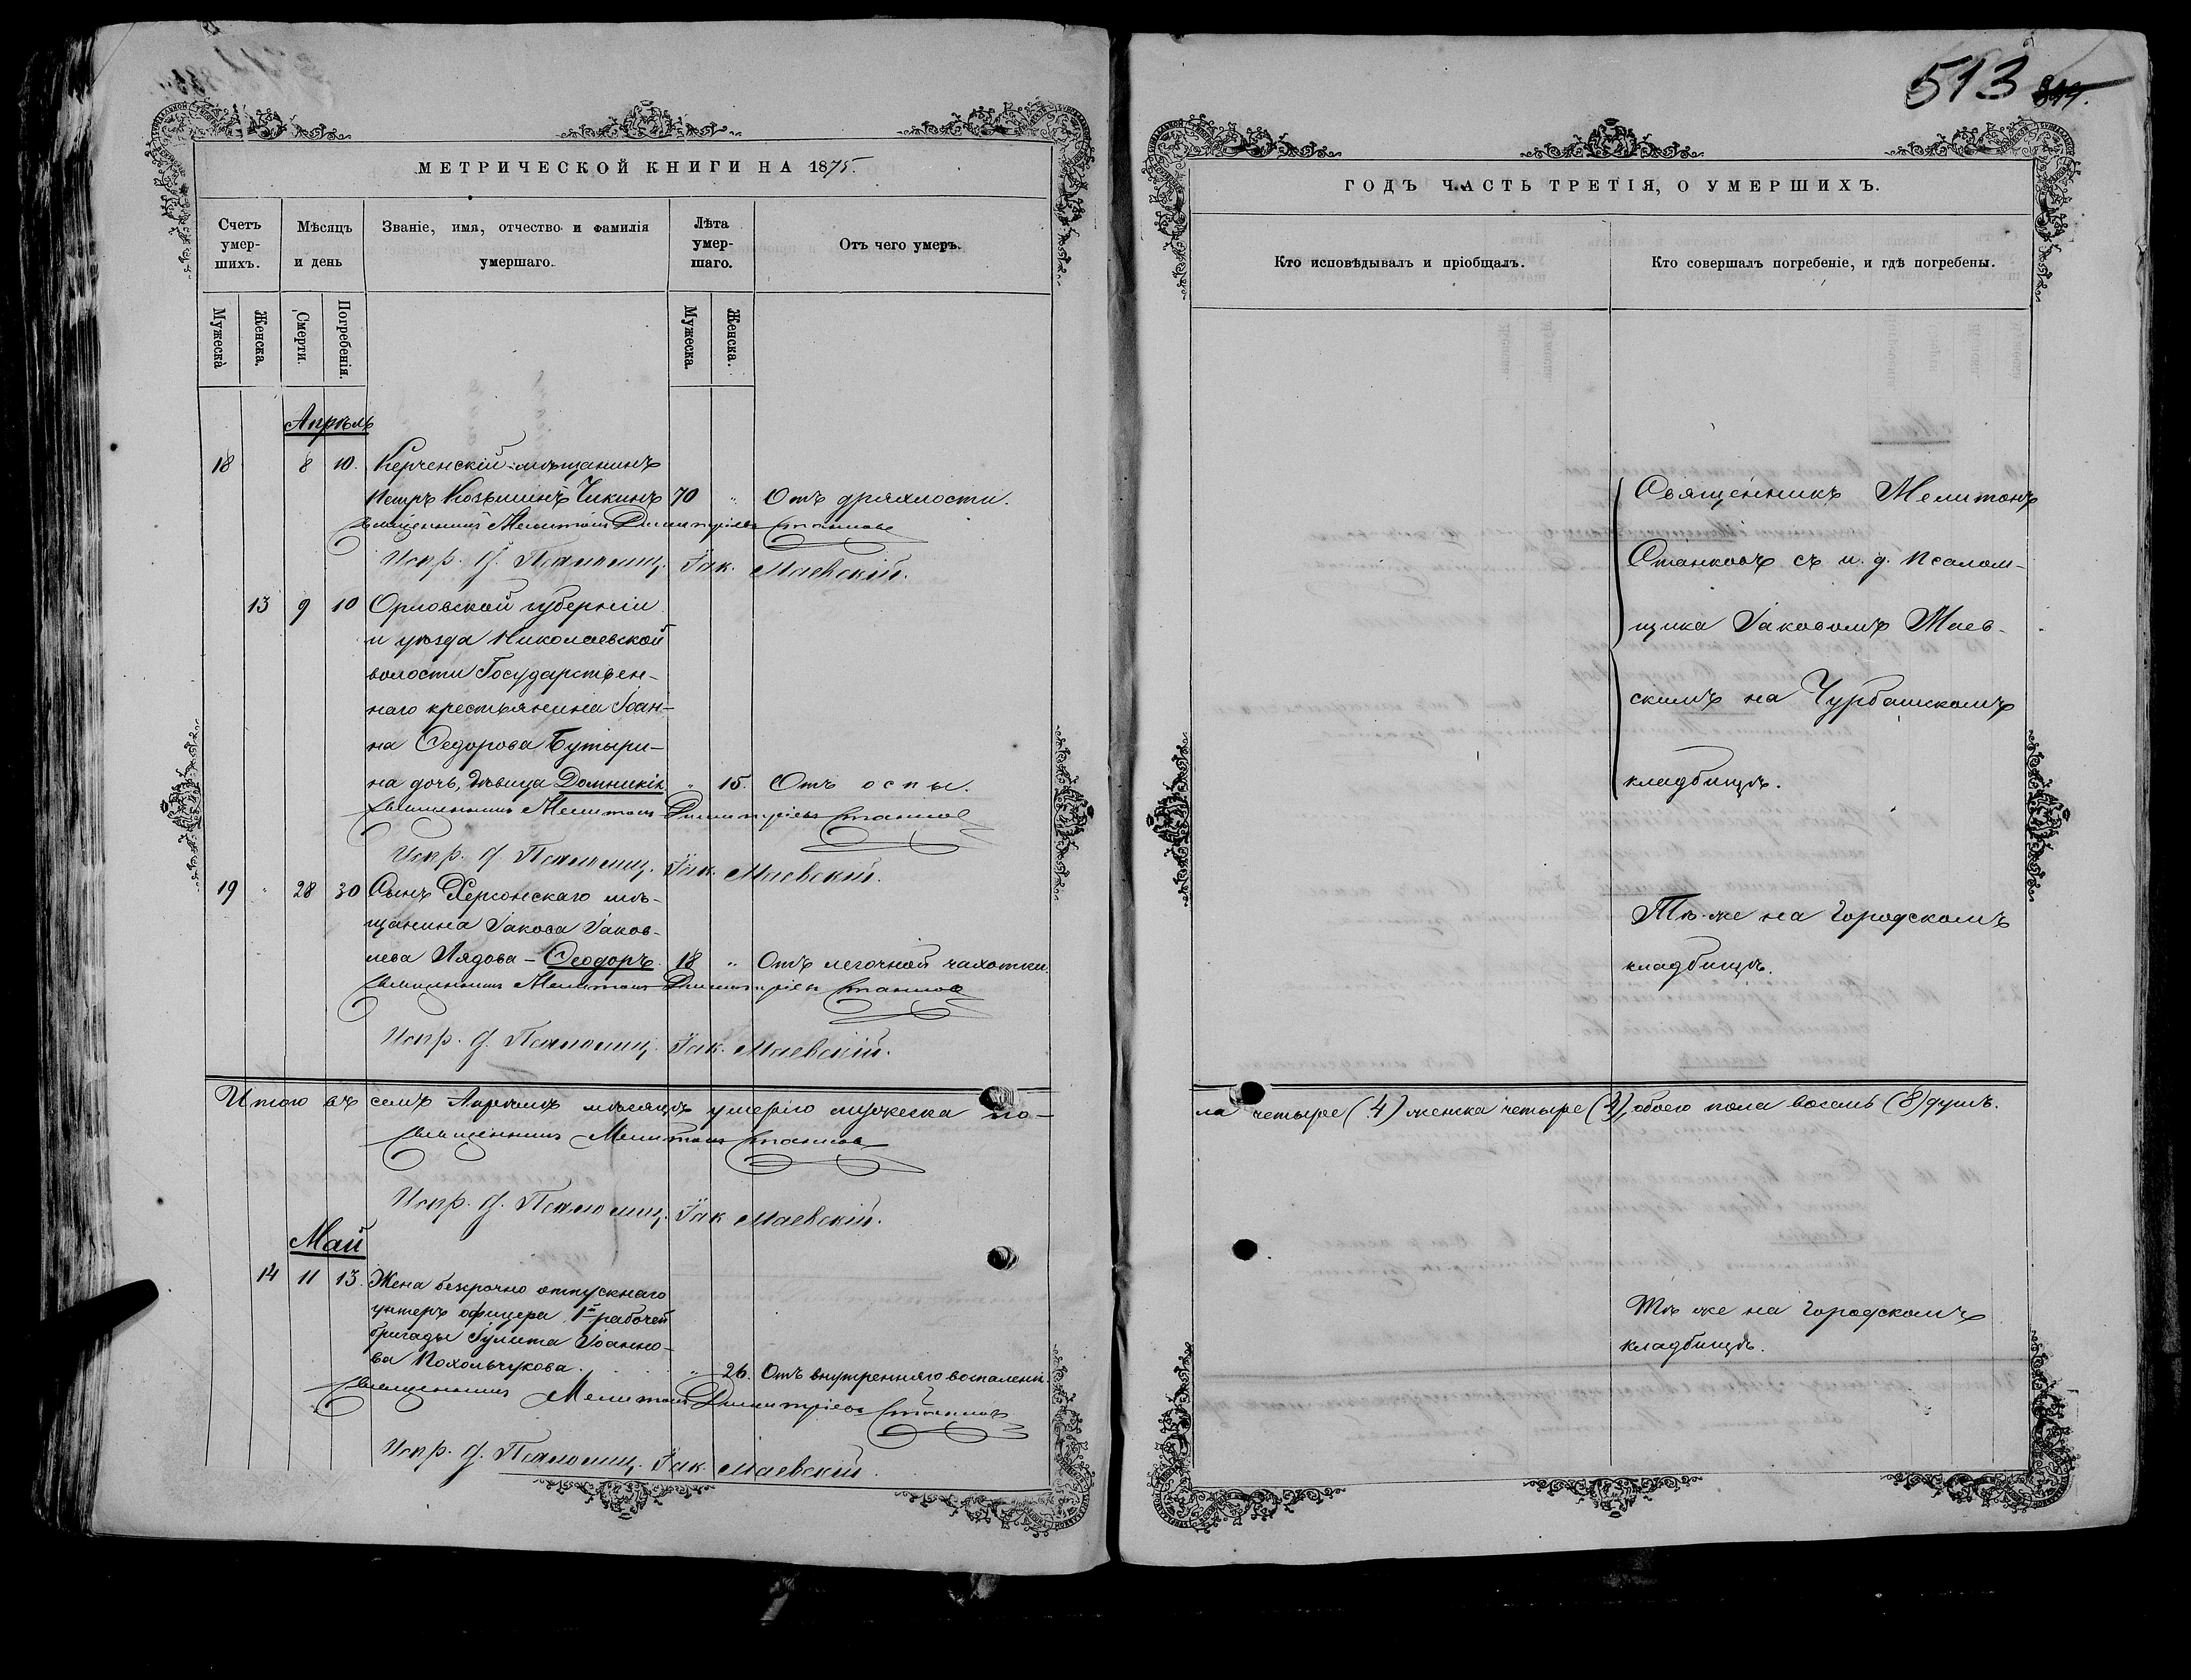 МЕТРИЧЕСКОЙ КНИГИ НА 1875.
Счетъ умер-шихъ.
Мѣсяцъ и день
Званіе, имя, отчество и фамилія умершаго.
Лѣта умер-шаго.
Отъ чего умеръ.
Мужеска
Женска.
Смерти.
Погребенія.
Мужеска.
Женска.
Апрѣль
18 8 10. Керченскій мѣщанинъ
Петръ Козьминъ Чикинъ 70 „ Отъ дряхлости.
Священникъ Мелитонъ Димитріевъ Станковъ
Испр. д. Псаломщ. Іак. Маевскій.
13 9 10 Орловской губерніи
и уѣзда Николаевской
волости Государствен-
наго крестьянина Іоан-
на Ѳедорова Бутыри-
на дочь, дѣвица Домникія „ 15. Отъ оспы.
Священникъ Мелитонъ Димитріевъ Станковъ
Испр. д. Псаломщ. Іак. Маевскій.
19 „ 28 30 Сынъ Херсонскаго мѣ-
щанина Іакова Іаков-
лева Лядова – Ѳеодоръ 18 „ Отъ легочной чахотки.
Священникъ Мелитонъ Димитріевъ Станковъ
Испр. д. Псаломщ. Іак. Маевскій.
Итого въ семъ Апрѣлѣ мѣсяцѣ умерло мужеска по-
Священникъ Мелитонъ Станковъ
Испр. д. Псаломщ. Іак Маевскій.
Май
14 11 13. Жена безсрочно отпускнаго
унтеръ офицера 1й рабочей
бригады Іулита Іоанно-
ва Похольчукова. „ 26. Отъ внутренняго воспаленія.
Священникъ Мелитонъ Димитріевъ Станковъ
Испр. д. Псаломщ. Іак. Маевскій.
513
ГОДЪ ЧАСТЬ ТРЕТІЯ, О УМЕРШИХЪ.
Кто исповѣдывалъ и пріобщалъ.
Кто совершалъ погребеніе, и гдѣ погребены.
Священникъ Мелитонъ
Станковъ съ и. д. псалом-
щика Іаковомъ Маев-
скимъ на Чурбашскомъ
кладбищѣ.
Тѣ-же на Городскомъ
кладбищѣ.
ла четыре (4) женска четыре (4), обоего пола восемь (8) душъ.
Тѣ же на Городскомъ
кладбищѣ.